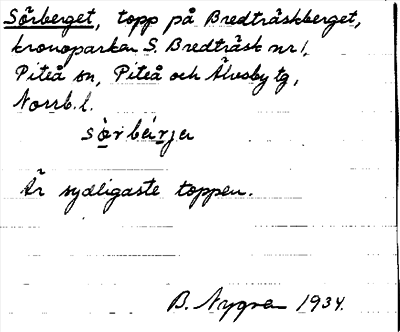 Sörberget, topp på Bredträskberget,
kronoparken S. Bredträsk nr 1,
Piteå sn, Piteå och Älvsby tg,
Norrb. l.
Är sydligaste toppen.
B. Nygren 1934.